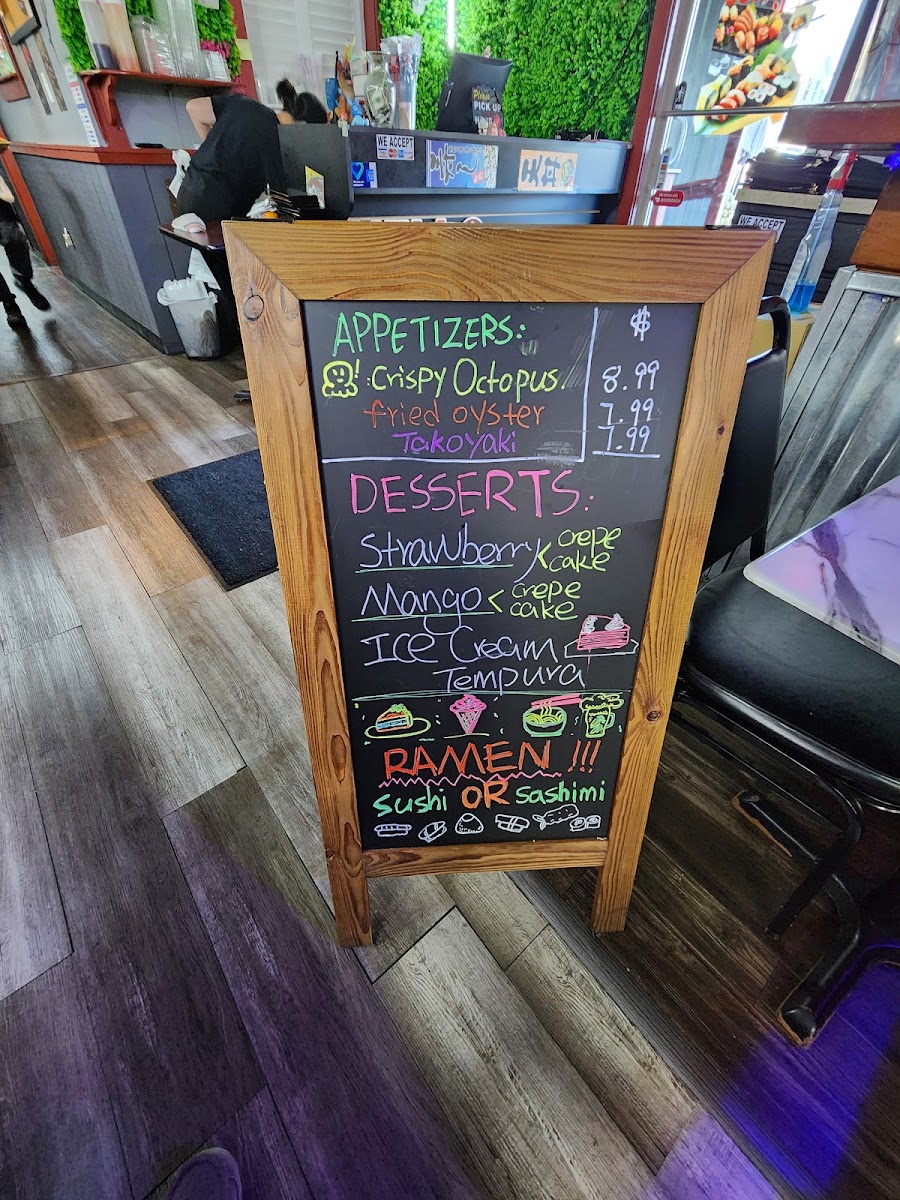 Please
PICK UP
WE ACCEPT
WE ACCEPT
APPETIZERS: $
:Crispy Octopus. 8.99
fried oyster 7.99
Takoyaki 7.99
DESSERTS:
Strawberry < crepe cake
Mango < crepe cake
ICe Cream
Tempura
RAMEN !!!
sushi OR sashimi